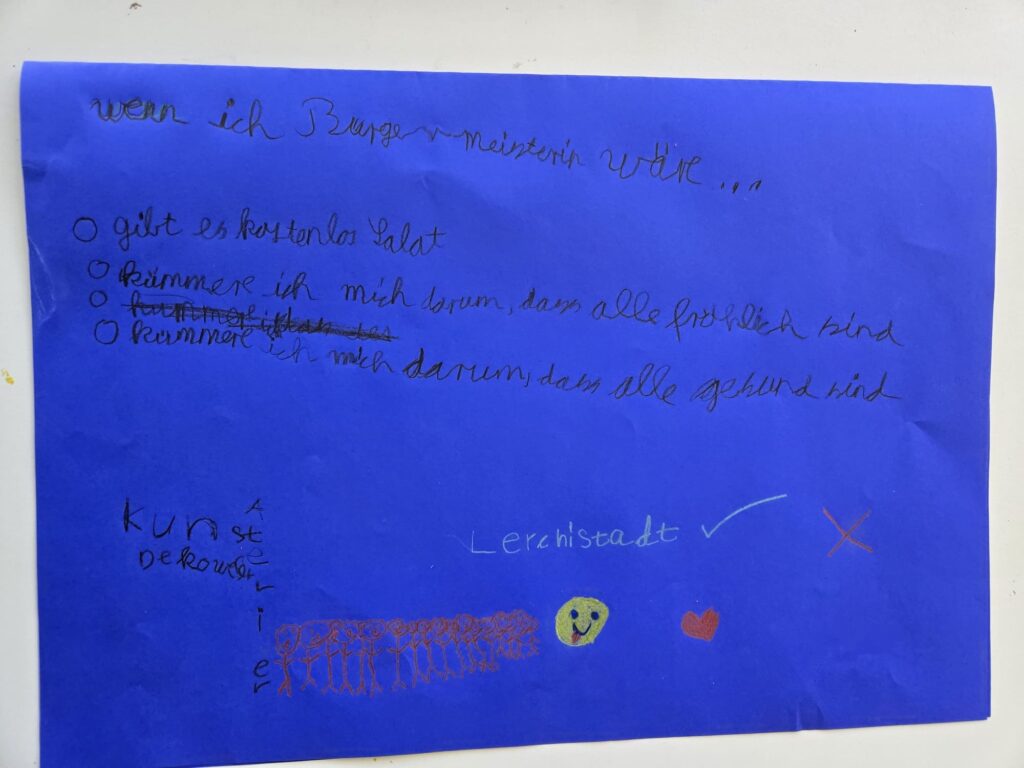 wenn ich Bürgermeisterin wäre...
gibt es kostenlos Salat
kümmere ich mich darum, dass alle fröhlich sind
kümmere ich mich darum, dass alle gesund sind
Kunst
Atelrier
Lerchistadt